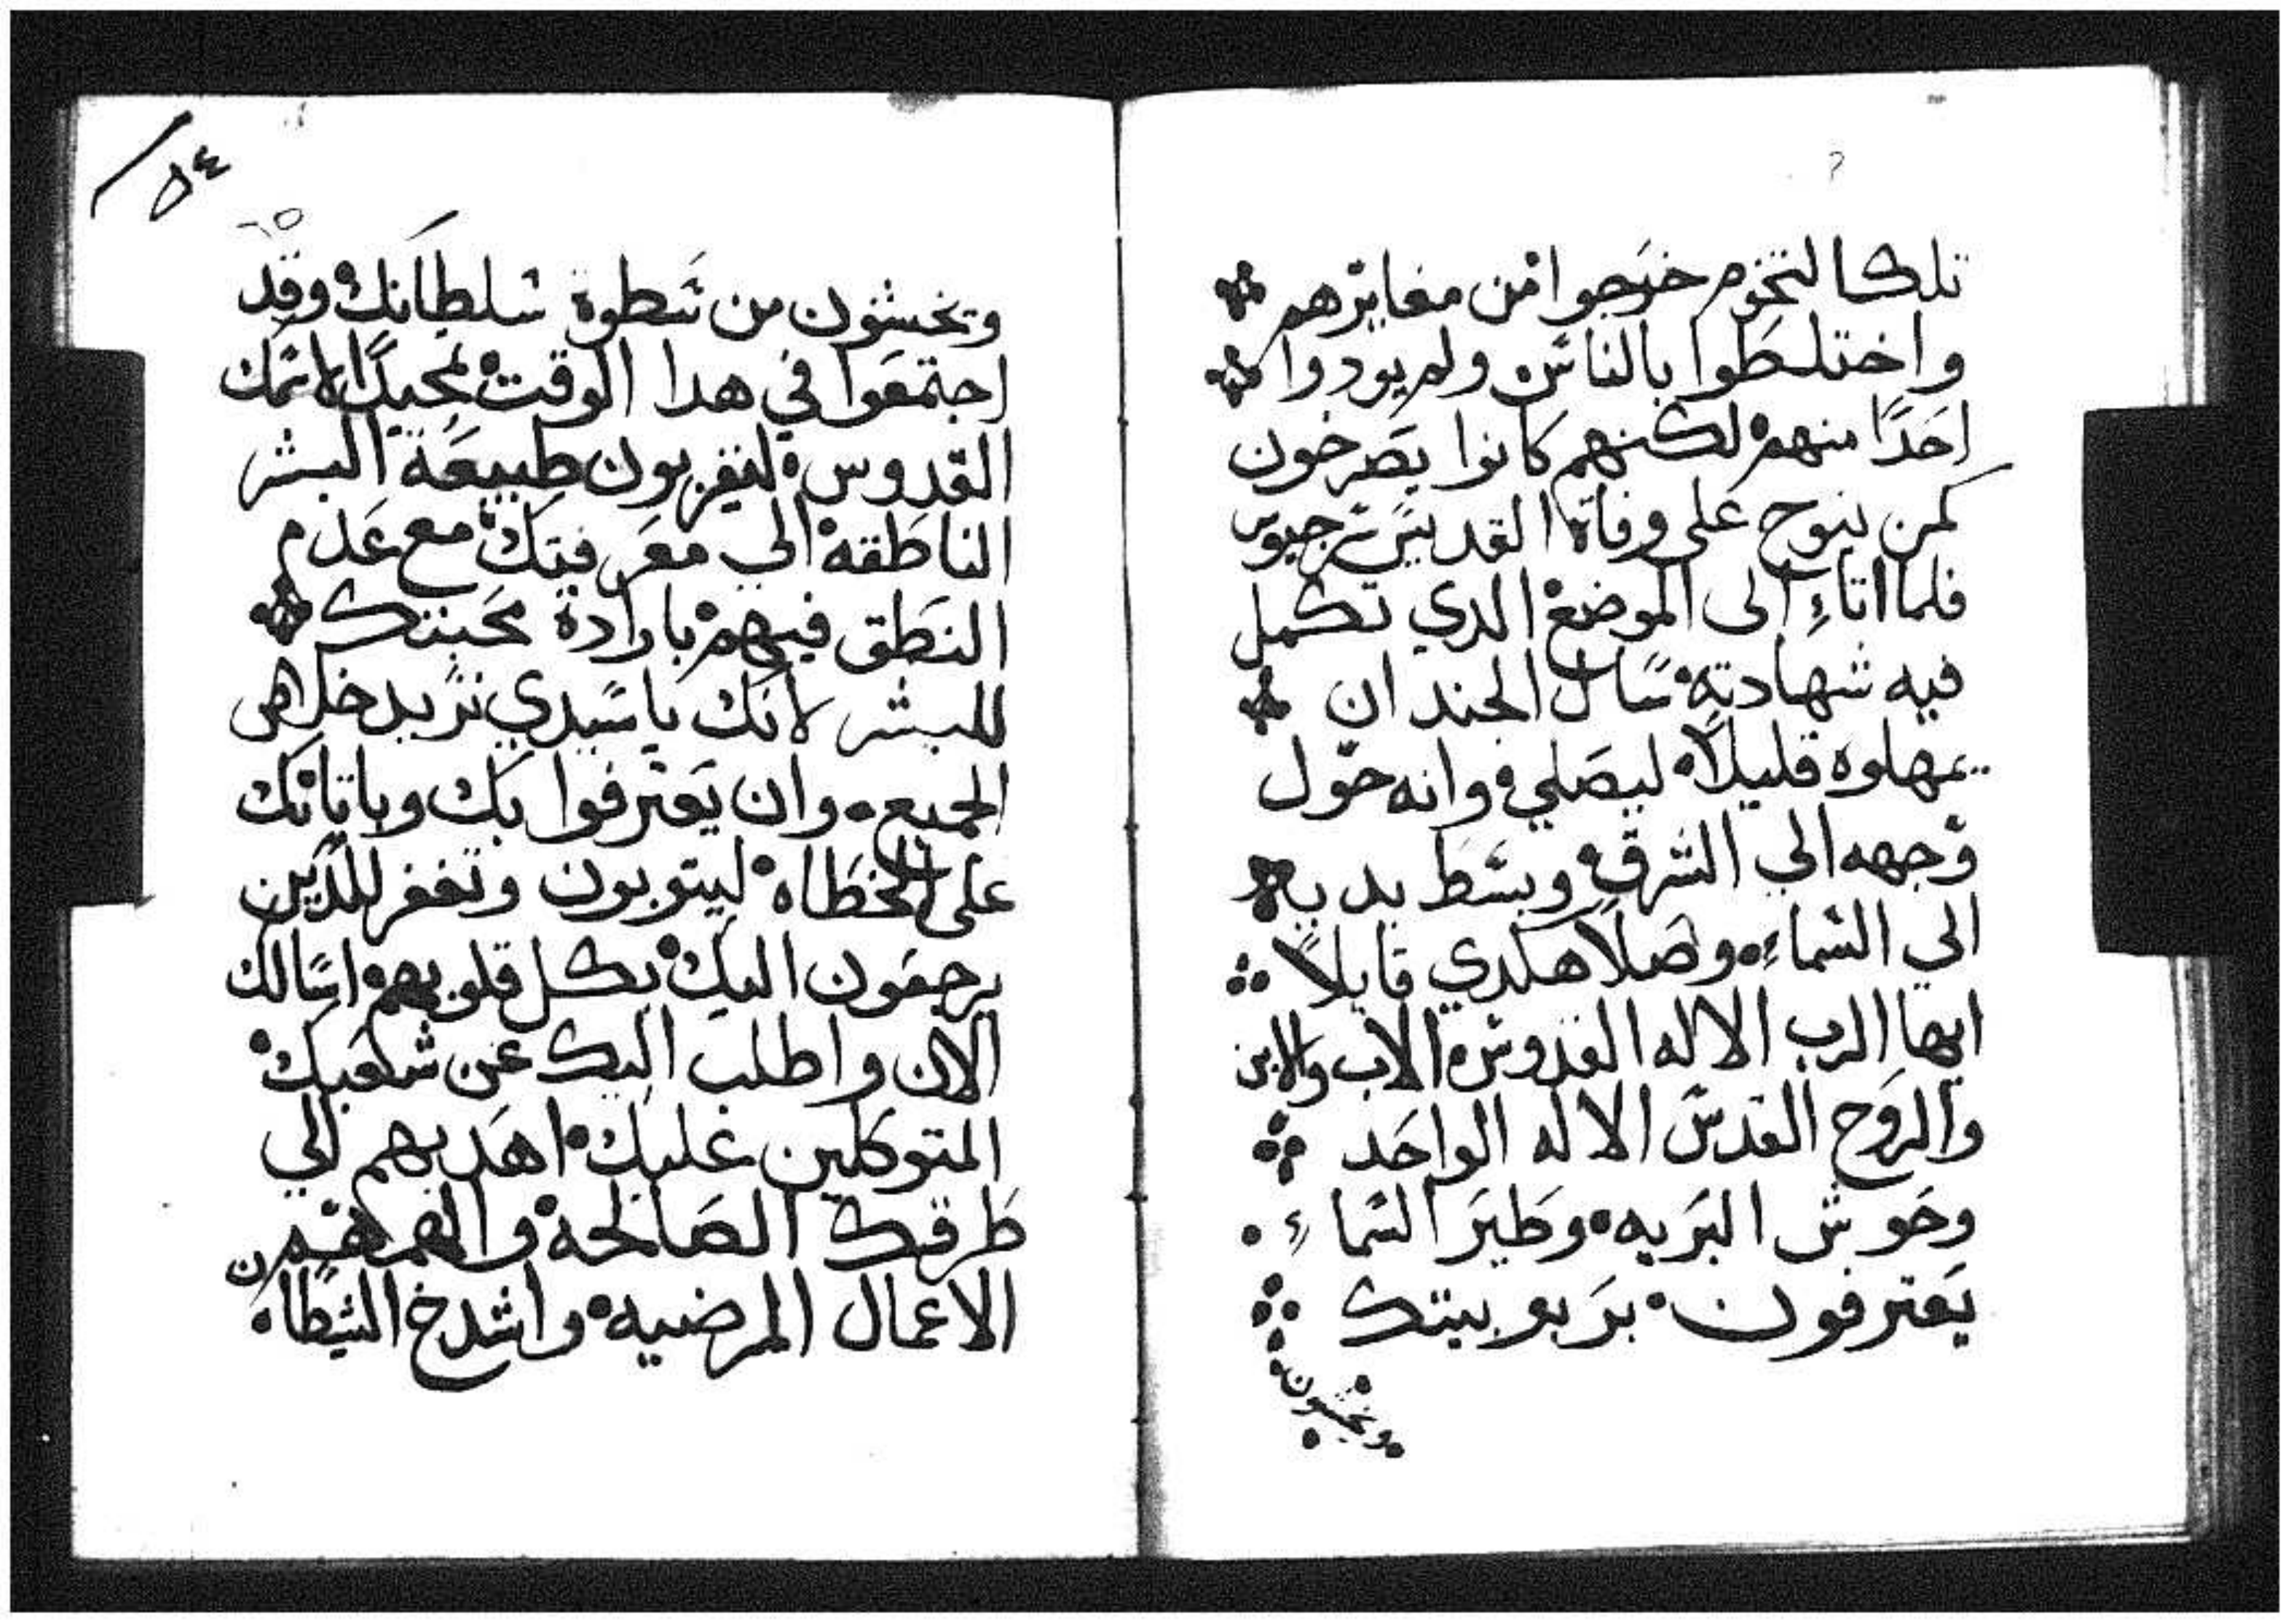 تلك التخوم خرجوا من مغايرهم
واختلطوا بالناس ولم يودوا
احدًا منهم لكنهم كانوا يصرخون
كمن ينوح على وفاة القديس سرجيوس
فلما اتاءِ الى الموضع الدي تكمل
فيه شهادته سال الجند ان
يمهلوه قليلاً ليصلي وانه حول
وجهه الي الشرق وبسط يديه
الي السماءِ وصلا هكدي قايلاً
ايها الرب الاله القدوس الاب والابن
والروح القدس الاله الواحد
وحوش البريه وطير السماءِ
يعترفون بربوبيتك
ويخشون
٥٤
ويخشون من سطوة سلطانك وقد
اجتمعوا في هدا الوقت لمجيدًا لاسمك
القدوس ليقربون طبيعة البشر
الناطقه الي معرفيتك مع عدم
النطق فيهم بارادة محبتك
للبشر لانك يا سيدي تريد خلاص
الجميع وان يعترفوا بك وباتيانك
على الخطاه ليتوبون وتغفر للدين
يرجعون اليك بكل قلوبهم اسالك
الان واطلب اليك عن شعبك
المتوكلين عليك اهديهم الي
طرقك الصالحة والهمهم
الاعمال المرضيه واشدخ الشيطان